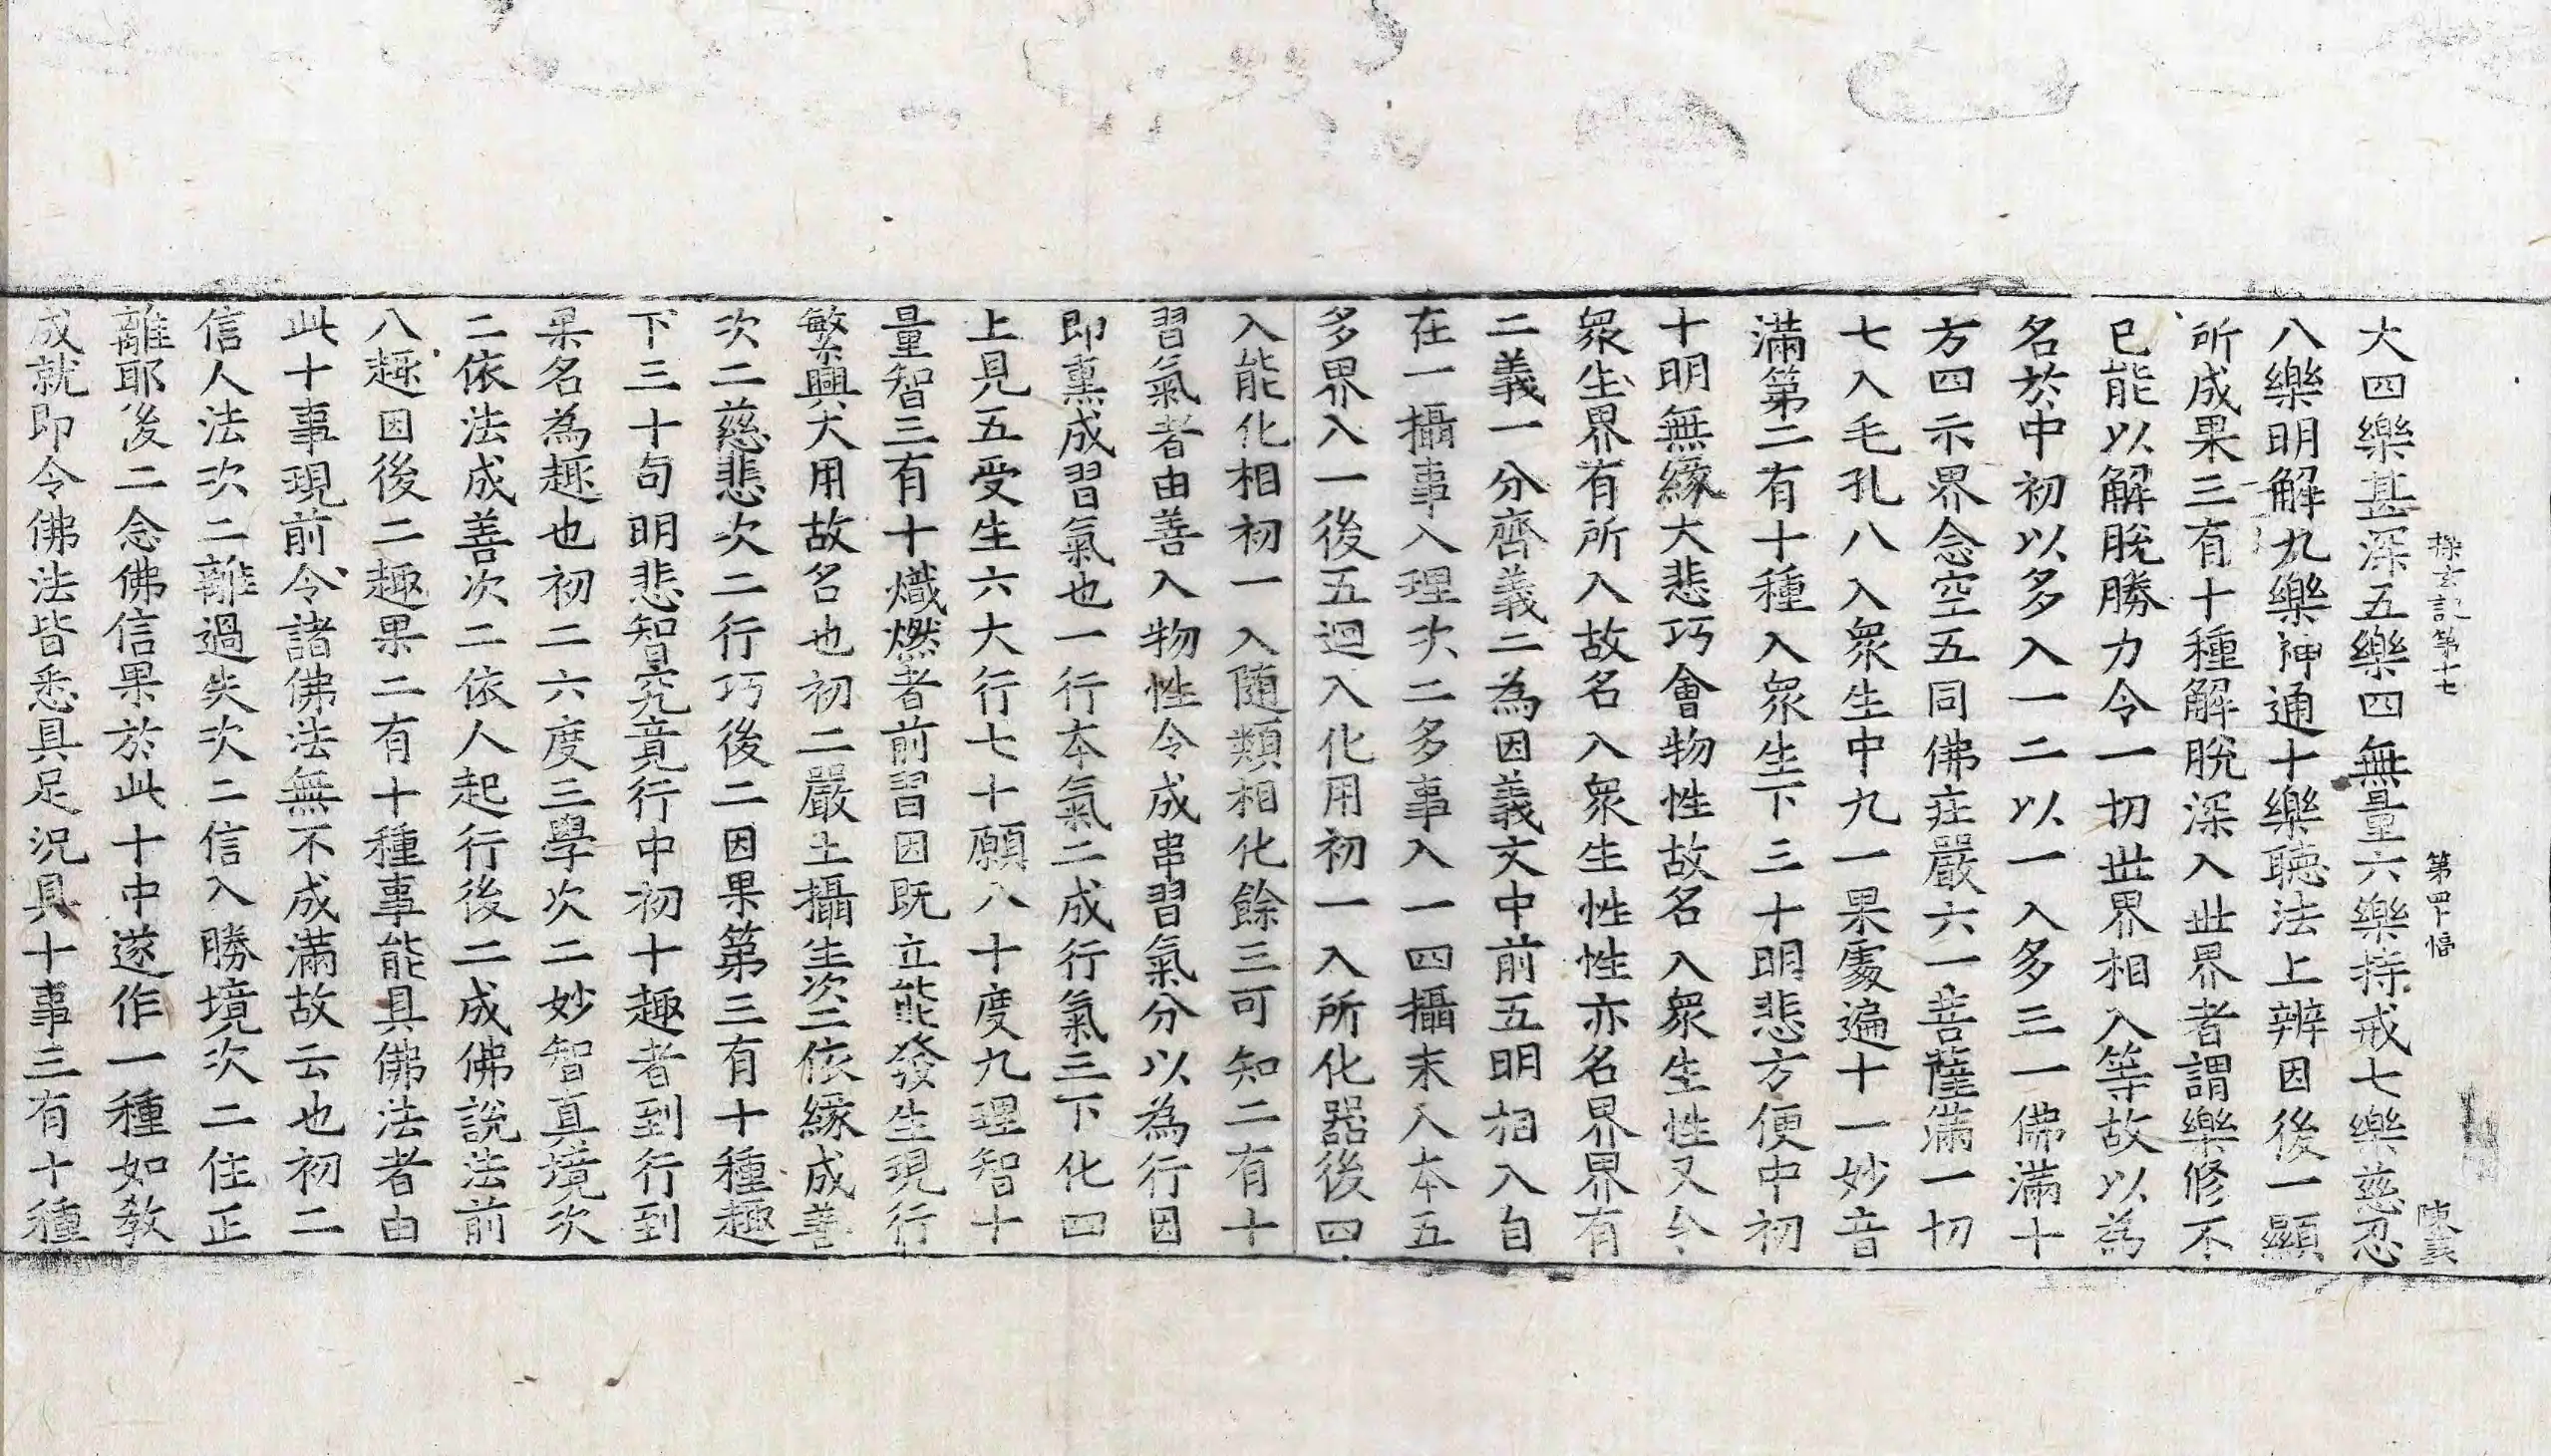 探玄記第十七　第四十幅　陳裏
大四樂甚深五樂四無量六樂持戒七樂慈忍
八樂明解九樂神通十樂聽法上辨因後一顯
所成果三有十種解脫深入世界者謂樂修不
已能以解脫勝力令一切世界相入等故以為
名於中初以多入一二以一入多三一佛滿十
方四示界念空五同佛莊嚴六一菩薩滿一切
七入毛孔八入眾生中九一果處遍十一妙音
滿第二有十種入眾生下三十明悲方便中初
十明無緣大悲巧會物性故名入眾生性又今
眾生界有所入故名入眾生性性亦名界界有
二義一分齊義二為因義文中前五明相入自
在一攝事入理次二多事入一四攝末入本五
多界入一後五迴入化用初一入所化器後四
入能化相初一入隨類相化餘三可知二有十
習氣者由善入物性令成串習氣分以為行因
即熏成習氣也一行本氣二成行氣三下化四
上見五受生六大行七十願八十度九理智十
量智三有十熾燃者前習因既立能發生現行
繁興大用故名也初二嚴土攝生次二依緣成善
次二慈悲次二行巧後二因果第三有十種趣
下三十句明悲智究竟行中初十趣者到行到
果名為趣也初二六度三學次二妙智真境次
二依法成善次二依人起行後二成佛說法前
八趣因後二趣果二有十種事能具佛法者由
此十事現前令諸佛法無不成滿故云也初二
信人法次二離過失次二信入勝境次二住正
離耶後二念佛信果於此十中遂作一種如教
成就即令佛法皆悉具足況具十事三有十種